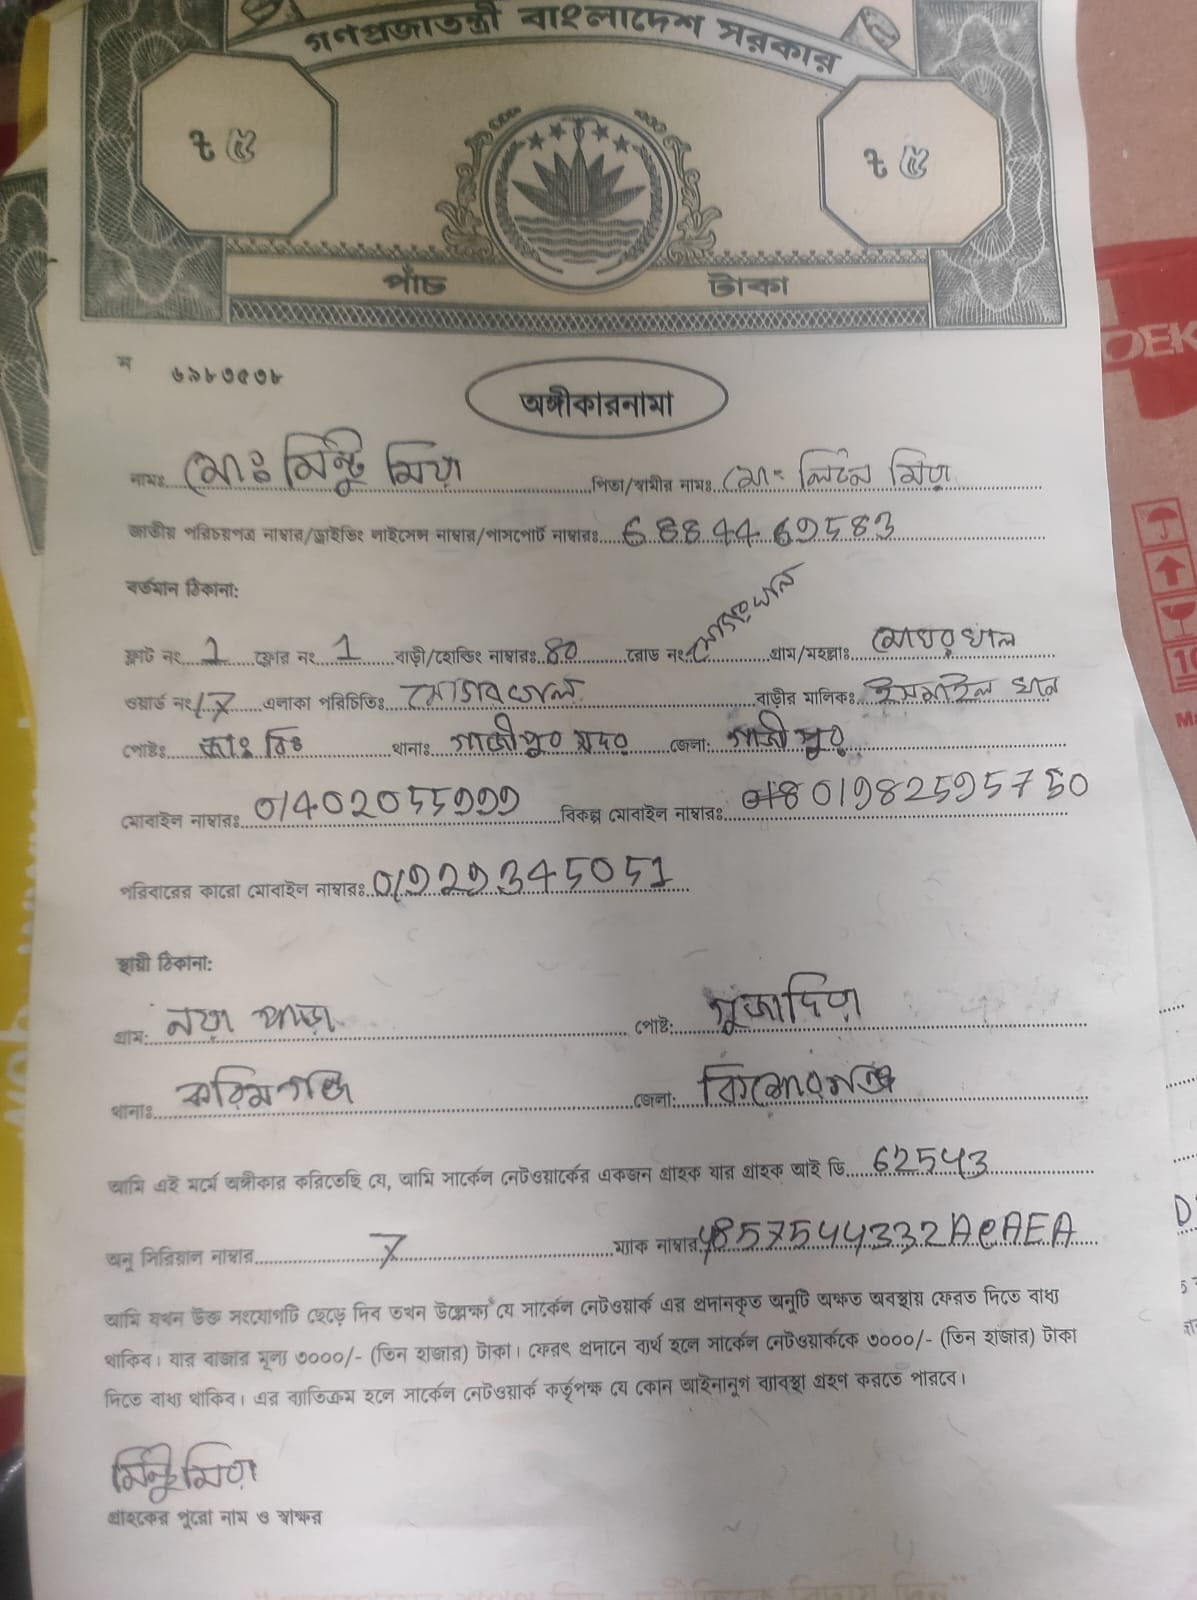 গণপ্রজাতন্ত্রী বাংলাদেশ সরকার
৳ ৫ ৳ ৫
পাঁচ টাকা
ম ৬৯৮৩৫৩৮
অঙ্গীকারনামা
নামঃ মোঃ মিন্টু মিয়া পিতা/স্বামীর নামঃ মোঃ লিটন মিয়া
জাতীয় পরিচয়পত্র নাম্বার/ড্রাইভিং লাইসেন্স নাম্বার/পাসপোর্ট নাম্বারঃ 6884469583
বর্তমান ঠিকানা:
ফ্লাট নং 1 ফ্লোর নং 1 বাড়ী/হোল্ডিং নাম্বারঃ 80 রোড নং মোগরখাল গ্রাম/মহল্লাঃ মোগরখাল
ওয়ার্ড নং 17 এলাকা পরিচিতিঃ মোগরখাল বাড়ীর মালিকঃ ইসমাইল খান
পোষ্টঃ থানাঃ গাজীপুর সদর জেলা: গাজীপুর
মোবাইল নাম্বারঃ 01402055999 বিকল্প মোবাইল নাম্বারঃ 01982595750
পরিবারের কারো মোবাইল নাম্বারঃ 01929345051
স্থায়ী ঠিকানা:
গ্রাম: নয়া পাড়া পোষ্ট: গুজাদিয়া
থানাঃ করিমগঞ্জ জেলা: কিশোরগঞ্জ
আমি এই মর্মে অঙ্গীকার করিতেছি যে, আমি সার্কেল নেটওয়ার্কের একজন গ্রাহক যার গ্রাহক আই ডি 62543
অনু সিরিয়াল নাম্বার 7 ম্যাক নাম্বার 4857544332AeAEA
আমি যখন উক্ত সংযোগটি ছেড়ে দিব তখন উল্লেক্ষ্য যে সার্কেল নেটওয়ার্ক এর প্রদানকৃত অনুটি অক্ষত অবস্থায় ফেরত দিতে বাধ্য
থাকিব। যার বাজার মূল্য ৩০০০/- (তিন হাজার) টাকা। ফেরৎ প্রদানে ব্যর্থ হলে সার্কেল নেটওয়ার্ককে ৩০০০/- (তিন হাজার) টাকা
দিতে বাধ্য থাকিব। এর ব্যাতিক্রম হলে সার্কেল নেটওয়ার্ক কর্তৃপক্ষ যে কোন আইনানুগ ব্যাবস্থা গ্রহণ করতে পারবে।
মিন্টু মিয়া
গ্রাহকের পুরো নাম ও স্বাক্ষর